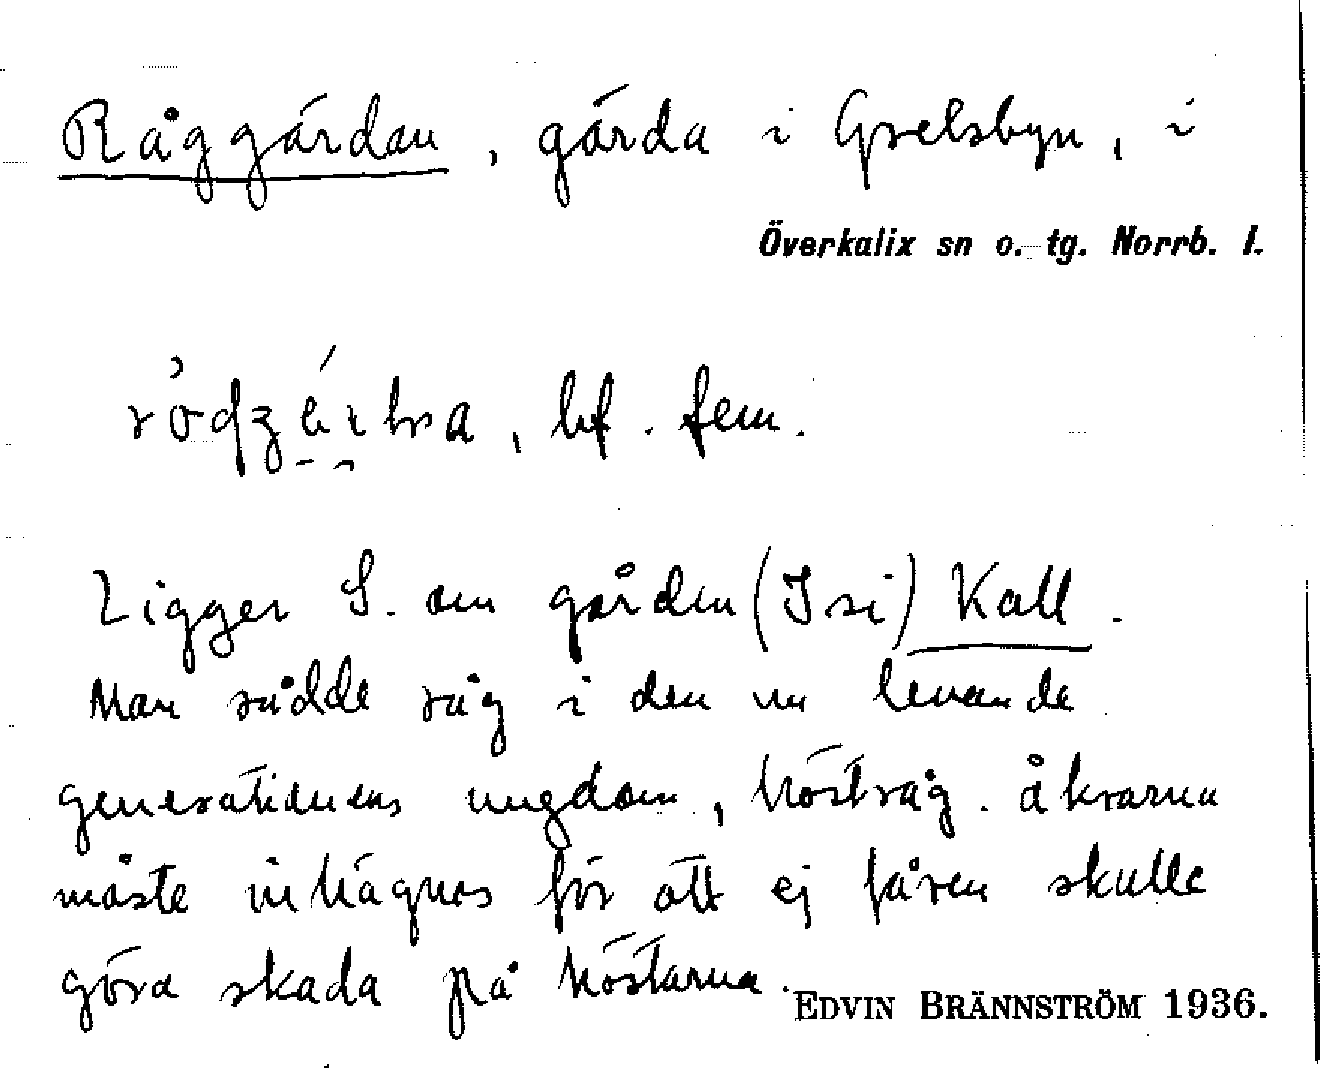 Råggärdan, gärda i Grelsbyn, i
Överkalix sn o. tg. Norrb. l.
, bf. fem.
Ligger S. om gården (Isi) Kall.
Man sådde råg i den nu levande
generationens ungdom, höstråg. åkrarna
måste inhägnas för att ej fåren skulle
göra skada på höstarna.
EDVIN BRÄNNSTRÖM 1936.